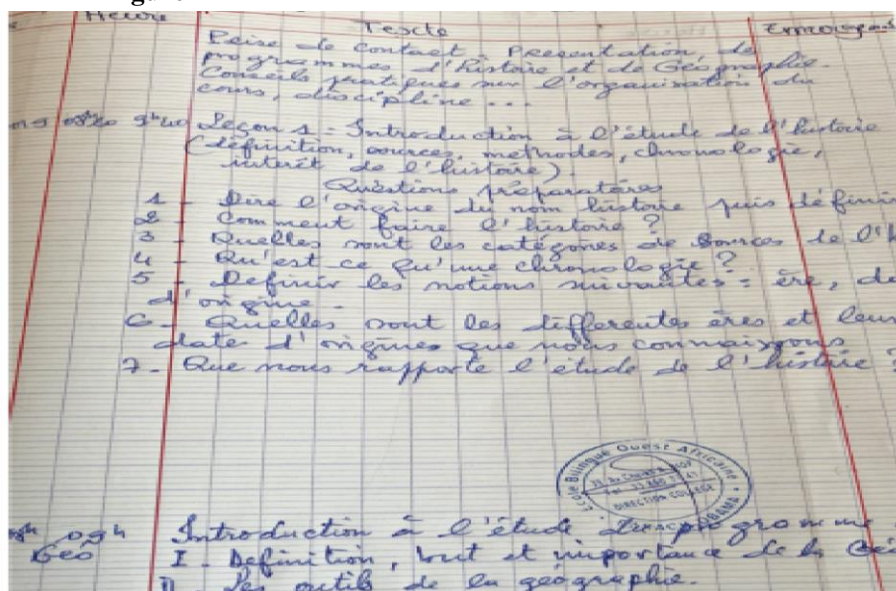 Heure Texte Emargem
Prise de contact, Presentation de
programmes d'histoire et de Géographie.
Conseils pratiques sur l'organisation du
cours, discipline ...
09 08h20 9h40 Leçon 1 = Introduction à l'étude de l'histoire
(définition, sources, methodes, chronologie,
interêt de l'histoire).
Questions préparatoires
1 - Dire l'origine du nom histoire puis définir
2 - Comment faire l'histoire ?
3 - Quelles sont les catégories de sources de l'h
4 - Qu'est ce qu'une chronologie ?
5 - Definir les notions suivantes = ère, da
d'origine.
6 - Quelles sont les differentes ères et leur
date d'origines que nous connaissons
7 - Que nous rapporte l'étude de l'histoire ?
Ecole Bilingue Ouest Africaine
DIRECTION COLLEGE
09h Introduction à l'étude du programme
Géo I - Definition, but et importance de la Géo
II - Les outils de la géographie.